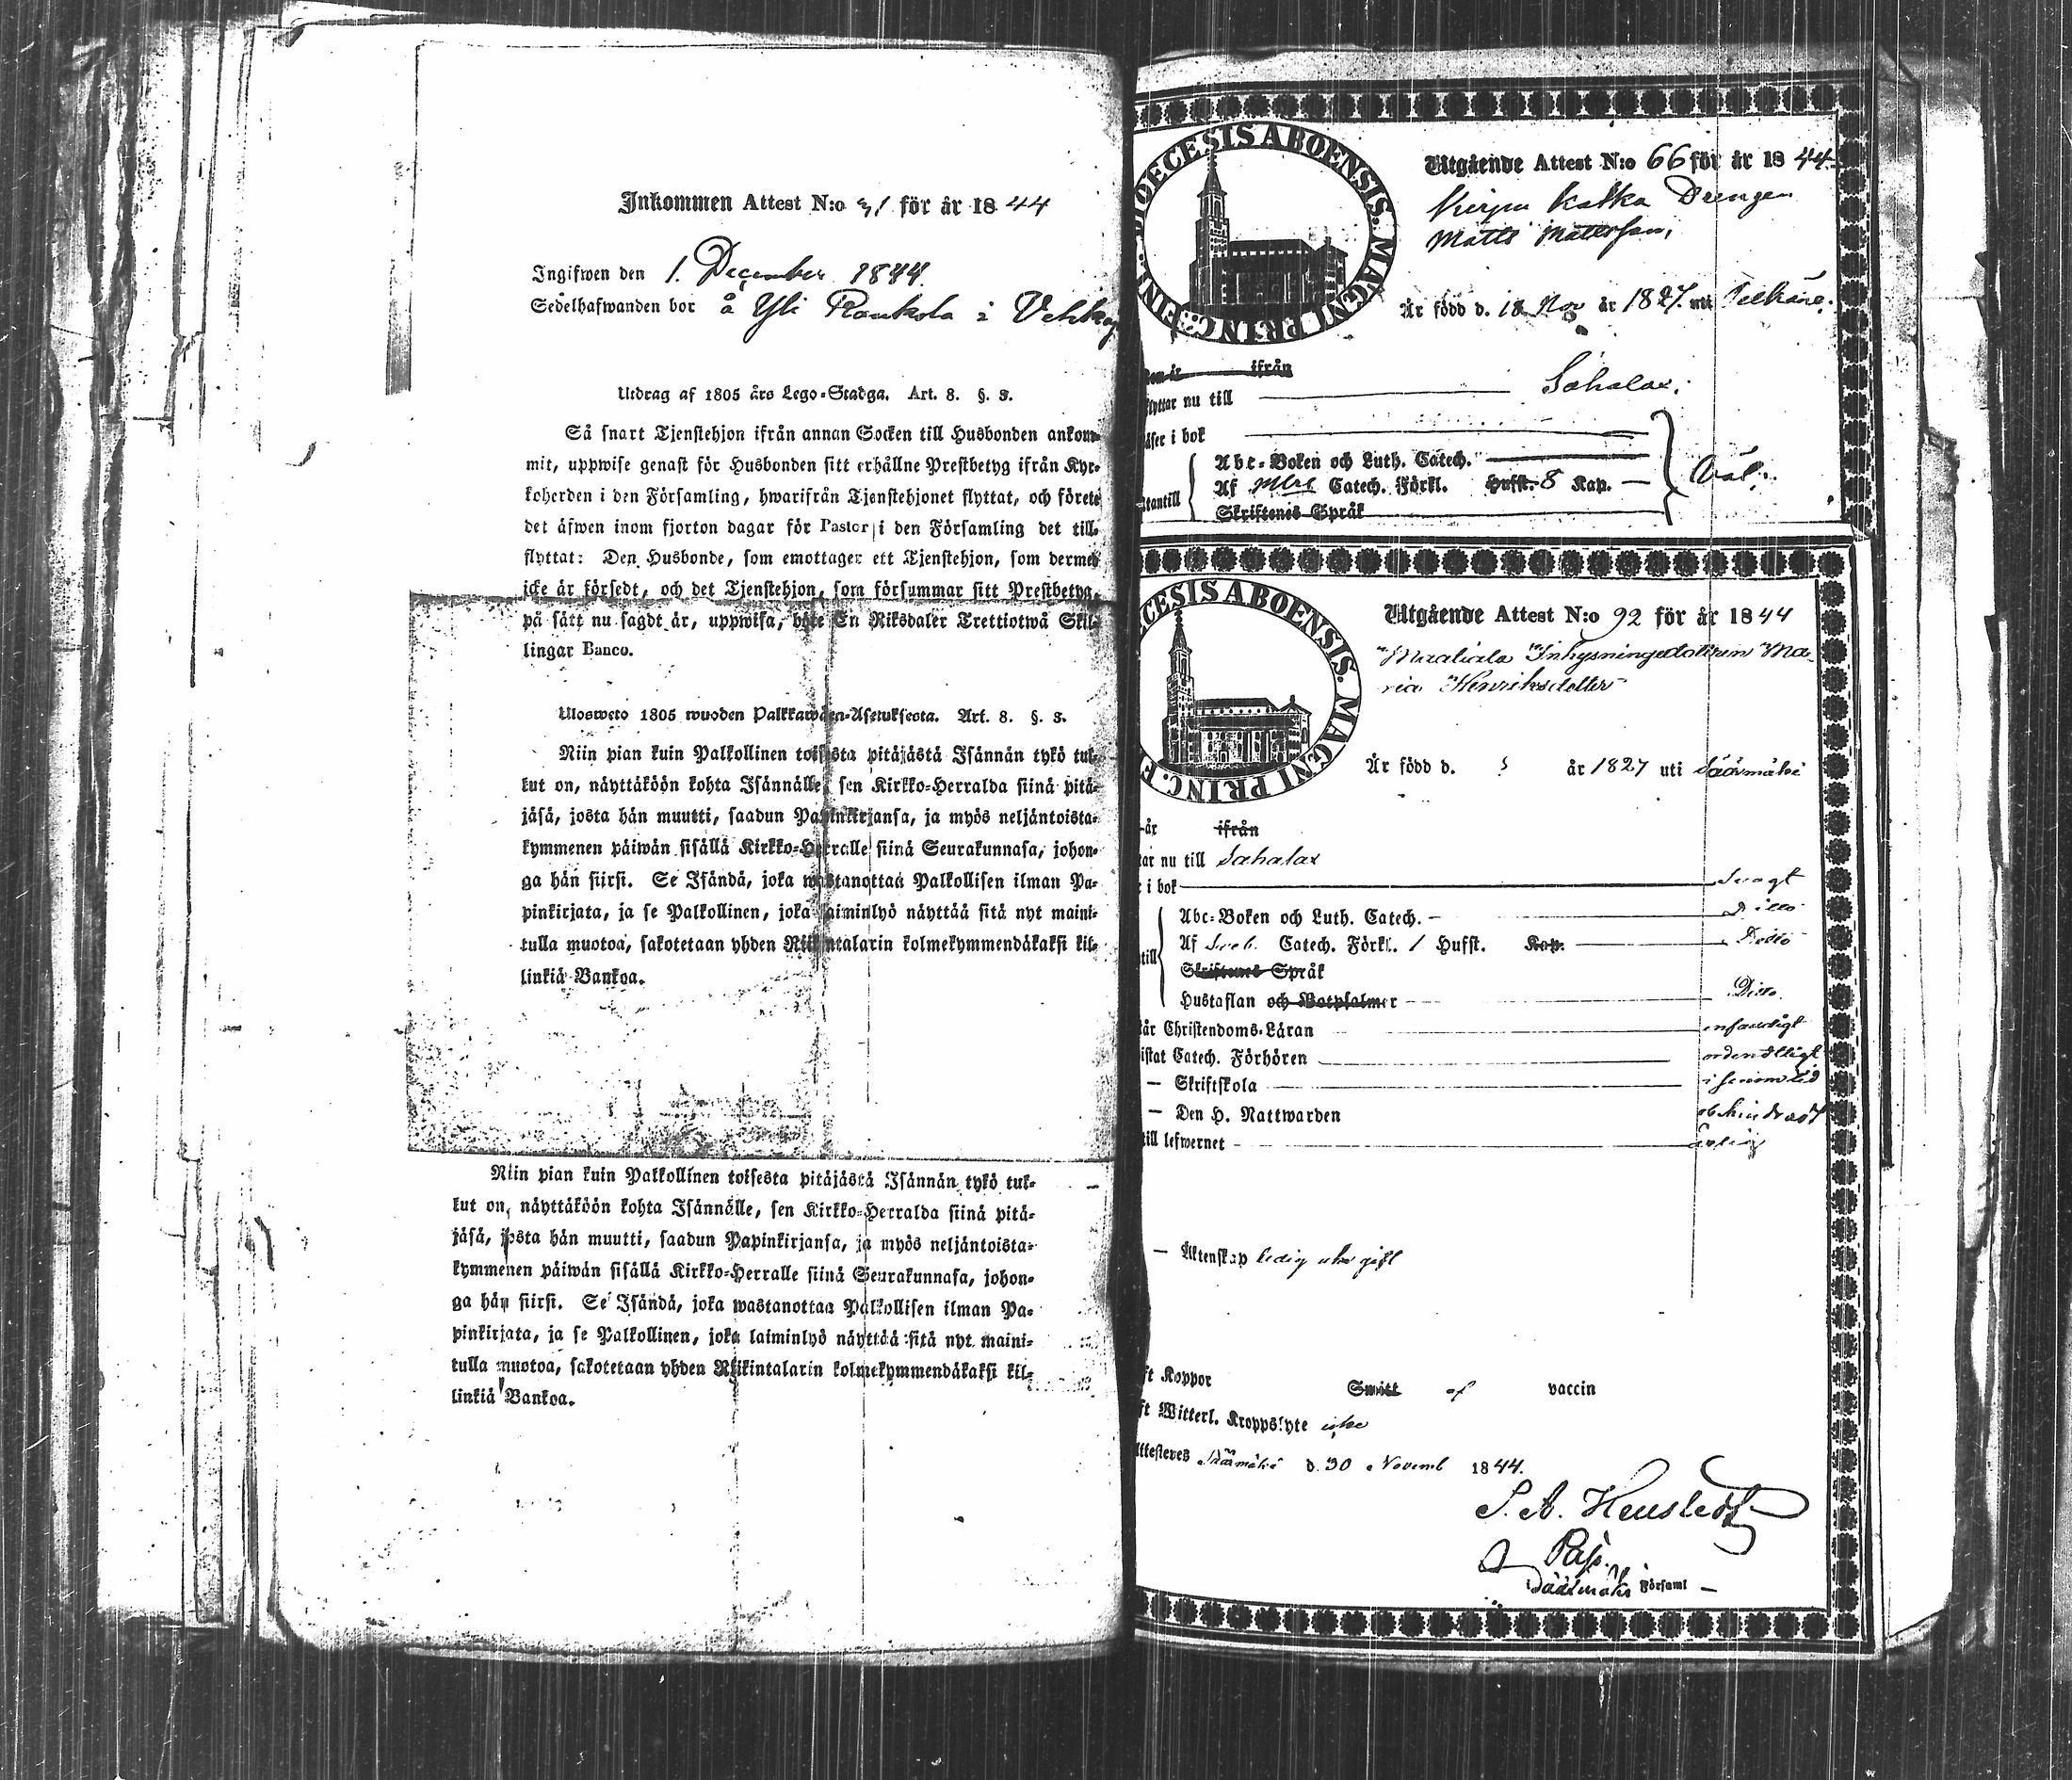 Inkommen Attest N:o 31 för år 1844
Ingifwen den 1. December 1844.
Sedelhafwanden bor å Yli Raukola i Vehka
Utdrag af 1805 års Lego-Stadga. Art. 8. §. 3.
Så snart Tjenstehjon ifrån annan Socken till Husbonden ankom-
mit, uppwise genast för Husbonden sitt erhållne Prestbetyg ifrån Kyr-
koherden i den Församling, hwarifrån Tjenstehjonet flyttat, och förete
det äfwen inom fjorton dagar för Pastor i den Församling det till-
flyttat: Den Husbonde, som emottager ett Tjenstehjon, som dermed
icke är försedt, och det Tjenstehjon, som försummar sitt Prestbetyg,
på sätt nu sagdt är, uppwisa, böte En Riksdaler Trettiotwå Skil-
lingar Banco.
Ulosweto 1805 wuoden Palkkawäen-Asetuksesta. Art. 8. §. 3.
Niin pian kuin Palkollinen toisesta pitäjästä Isännän tykö tul-
kut on, näyttäköön kohta Isännälle, sen Kirkko-Herralda siinä pitä-
jäsä, josta hän muutti, saadun Papinkirjansa, ja myös neljäntoista-
kymmenen päiwän sisällä Kirkko-Herralle siinä Seurakunnasa, johon-
ga hän siirsi. Se Isändä, joka wastanottaa Palkollisen ilman Pa-
pinkirjata, ja se Palkollinen, joka laiminlyö näyttää sitä nyt maini-
tulla muotoa, sakotetaan yhden Riikintalarin kolmekymmendäkaksi kil-
linkiä Bankoa.
Niin pian kuin Palkollinen toisesta pitäjästä Isännän tykö tul-
kut on, näyttäköön kohta Isännälle, sen Kirkko-Herralda siinä pitä-
jäsä, josta hän muutti, saadun Papinkirjansa, ja myös neljäntoista-
kymmenen päiwän sisällä Kirkko-Herralle siinä Seurakunnasa, johon-
ga hän siirsi. Se Isändä, joka wastanottaa Palkollisen ilman Pa-
pinkirjata, ja se Palkollinen, joka laiminlyö näyttää sitä nyt maini-
tulla muotoa, sakotetaan yhden Riikintalarin kolmekymmendäkaksi kil-
linkiä Bankoa.
DIOECESIS ABOENSIS. MAGNI PRINC. FINL.
Utgående Attest N:o 66 för år 1844
Drengen
Matts Mattsson,
Är född d. 18 Nov år 1827 uti
Den är ifrån
flyttar nu till Sahalax.
läser i bok
Abc-Boken och Luth. Catech.
Af Catech. Förkl. Hufst. 8 Kap.
Wäl.
utantill
Skriftenes Språk
CESIS ABOENSIS. MAGNI PRINC. F
Utgående Attest N:o 92 för år 1844
Inhysningedottren Ma-
ria Henriksdotter
Är född d. ? år 1827 uti Sääxmäki
är ifrån
tar nu till Sahalax
i bok Svagt
Abc-Boken och Luth. Catech. Ditto
Af Sveb. Catech. Förkl. 1 Hufst. Kap. Ditto
till
Skriftenes Språk
Hustaflan och Botpsalmer Ditto
är Christendoms-Läran enfaldigt
istat Catech. Förhören ordentligt
— Skriftskola i sinom tid
— Den H. Nattwarden obehindradt
till lefwernet ärlig
— Äktenskap ledig ifrån gift
ft Koppor Smitt af vaccin
ft Witterl. Kroppslyte icke
Attesteres Sääxmäki d. 30 Novemb 1844.
Församl